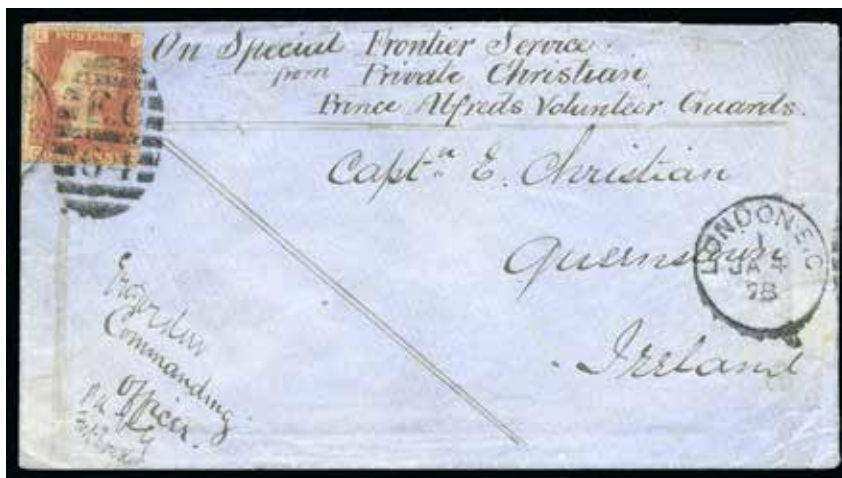 POSTAGE
On Special Frontier Service.
from Private Christian
Prince Alfreds Volunteer Guards.
Captn E. Christian
Queenstown
Ireland
LONDON·E.C
1
JA 4
78
Commanding
officer.